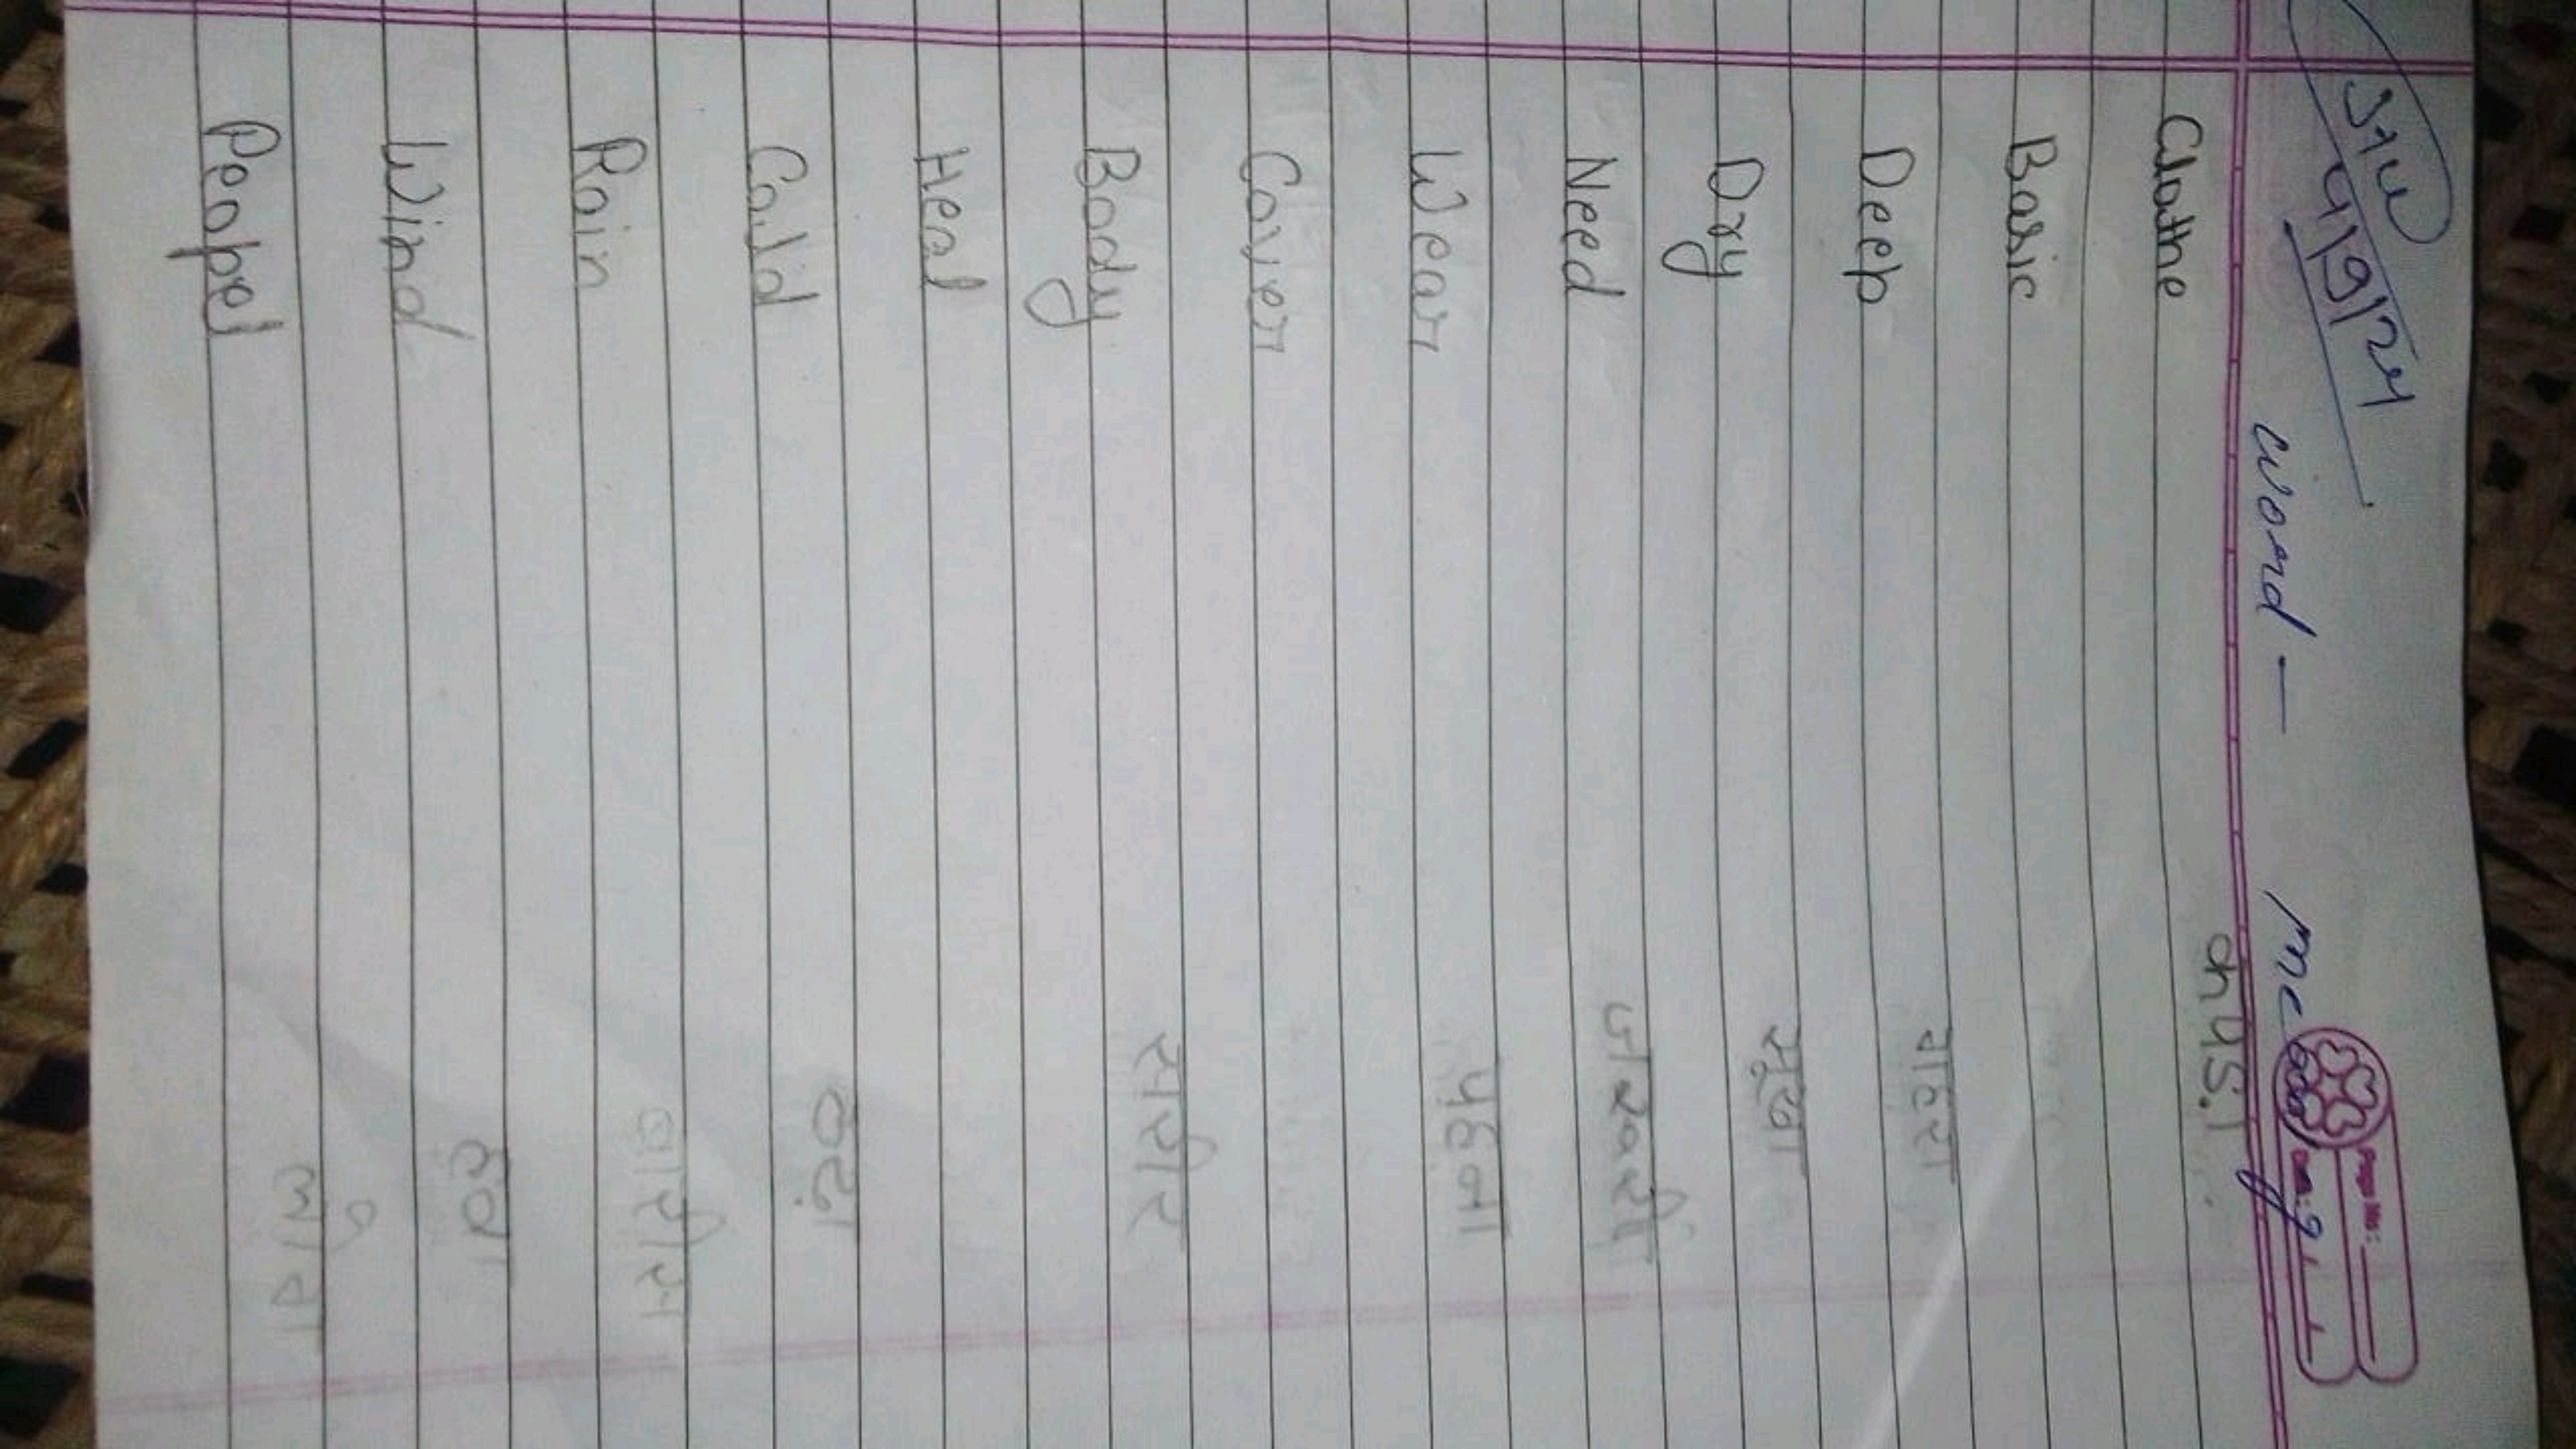 5/9/24
word — meaning
Page No:
Date:
Clothe कपड़ा
Basic
Deep गहरा
Dry सूखा
Need जरूरी
Wear पहनना
Cover
Body सरीर
Heal
Cold ठंढा
Rain बारीस
Wind हवा
Peopel